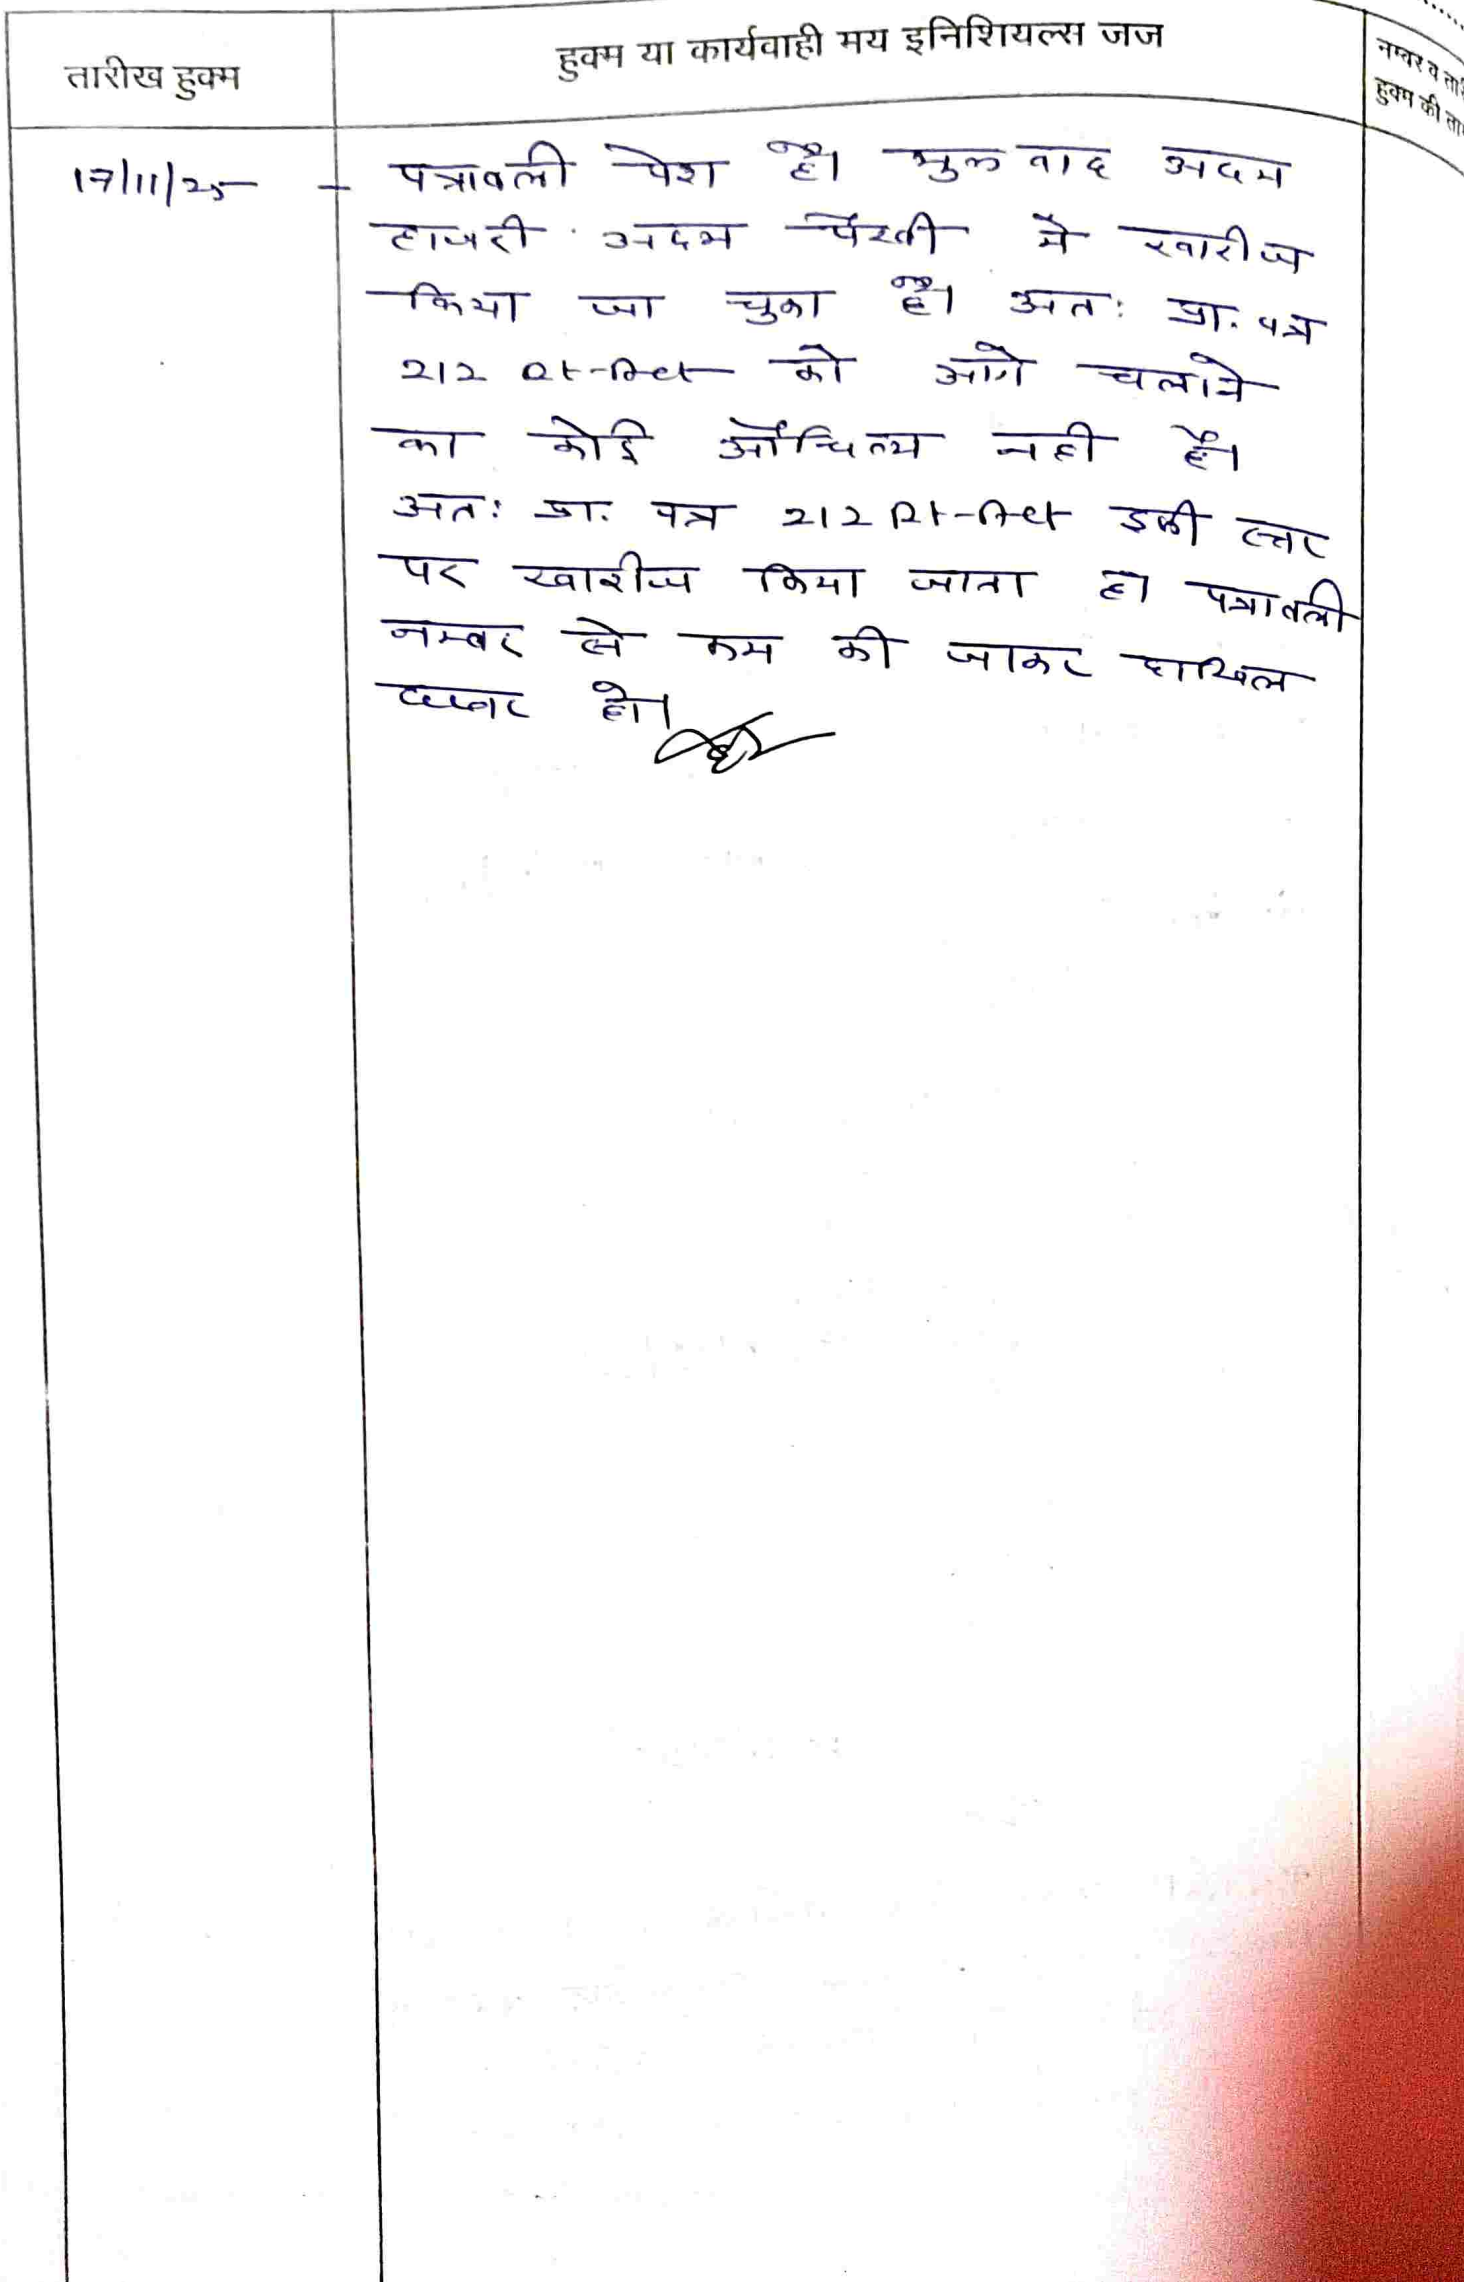 तारीख हुक्म
हुक्म या कार्यवाही मय इनिशियल्स जज
नम्बर व
हुक्म की
17/11/25 - पत्रावली पेश है। मुल वाद अदम
हाजरी अदम पैरवी मे खारीज
किया जा चुका है। अतः प्रा. पत्र
212 Rt-Act को आगे चलाने
का कोई औचित्य नही है।
अतः प्रा. पत्र 212 Rt-Act इसी स्तर
पर खारीज किया जाता है। पत्रावली
नम्बर से कम की जाकर दाखिल
दफ्तर हो।